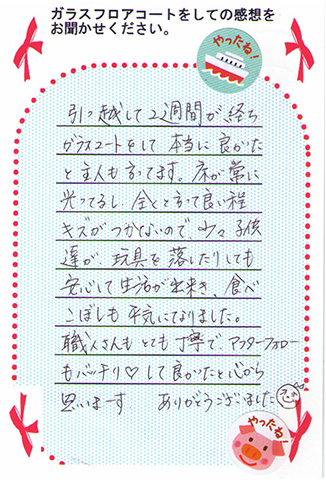 ガラスフロアコートをしての感想を
お聞かせください。
やったね!
引っ越して2週間が経ち
ガラスコートをして本当に良かた
と主人も言ってます。床が常に
光ってるし、全くと言って良い程
キズがつかないので、少々子供
達が、玩具を落したりしても
安心して生活が出来き、食べ
こぼしも平気になりました。
職人さんもとても丁寧で、アフターフォロー
もバッチリ♡して良かったと心から
思いまーす ありがとうございました
やったね!